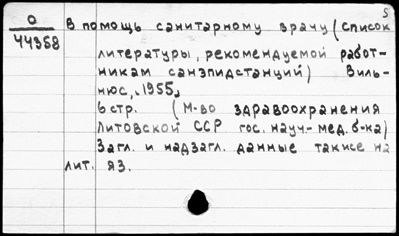 5
О
44358
В помощь санитарному врачу (список
литературы, рекомендуемой работ-
никам санэпидстанций) Виль-
нюс, 1955,
6 стр. (М-во здравоохранения
Литовской ССР гос. науч.-мед. б-ка)
Загл. и надзагл. данные также на
лит. яз.